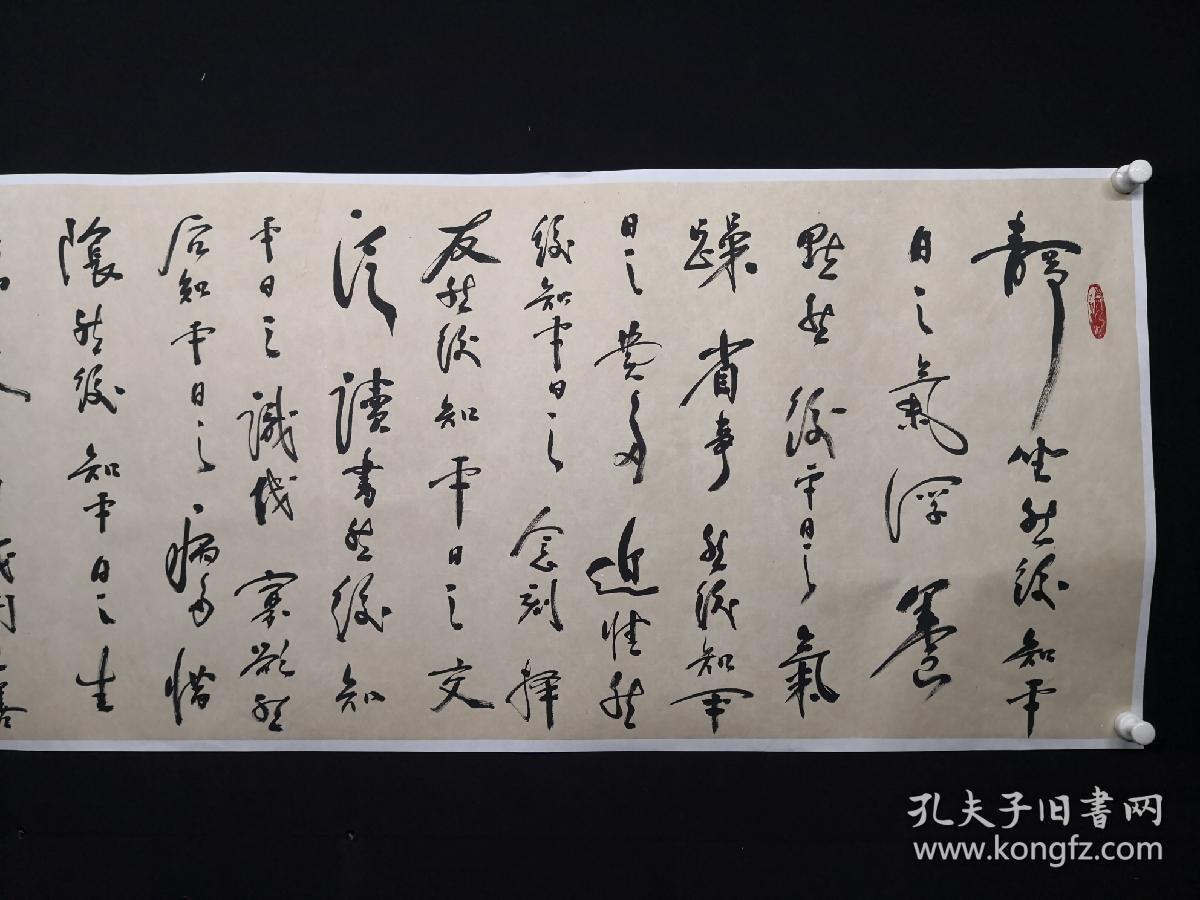 靜坐然後知平
日之氣浮養
默然後平日之氣
躁省事然後知平
日之費多近情然
後知平日之念刻擇
友然後知平日之交
泛讀書然後知
平日之識淺寡欲然
后知平日之病多惜
陰然後知平日之生
孔夫子旧書网
www.kongfz.com